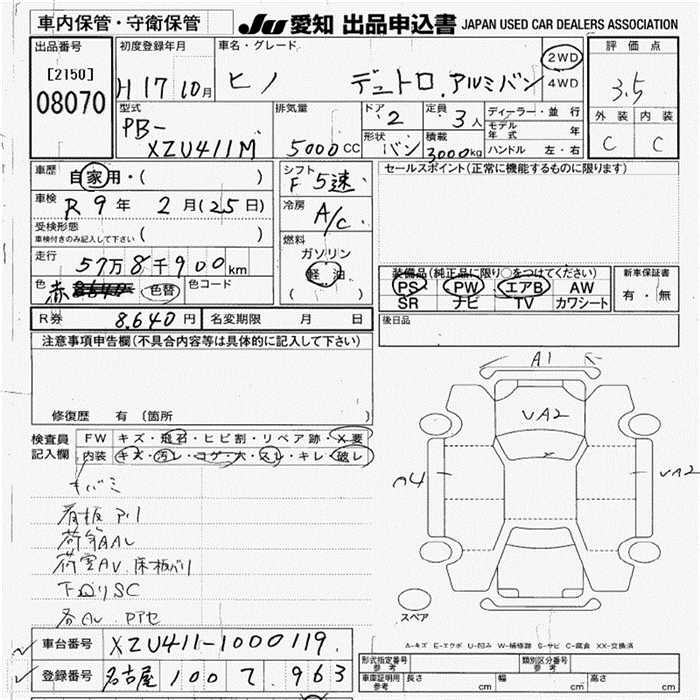 車内保管・守衛保管 JU 愛知 出品申込書 JAPAN USED CAR DEALERS ASSOCIATION
出品番号 初度登録年月 車名・グレード 評価点
[2150] H 17 10月 ヒノ デュトロ.アルミバン 2WD 4WD 3.5
08070
型式 排気量 ドア 2 定員 3人 ディーラー・並行 外装 内装
PB- モデル年式 年 C C
XZU411M 5000CC 形状 バン 積載 3000kg ハンドル 左・右
車歴 自家用・( ) シフト F 5速 セールスポイント(正常に機能するものに限ります)
車検 R 9年 2月(25日) 冷房 A/C
受検形態 ( )
車検付きのみ記入して下さい
燃料
走行 57万8千900km ガソリン
軽油
( )
装備品(純正品に限り○をつけてください) 新車保証書
色 赤 色替 色コード PS PW エアB AW 有・無
SR ナビ TV カワシート
R券 8,640円 名変期限 月 日 後日品
注意事項申告欄(不具合内容等は具体的に記入して下さい)
修復歴 有(箇所
検査員記入欄 FW キズ・飛石・ヒビ割・リペア跡・X要
内装 キズ・汚レ・コゲ・穴・スレ・キレ・破レ
A1
VA2
VA2
キバミ
看板アリ
荷台AAL
荷室AV.床板バリ
下回りSC
スペア
A-キズ E-エクボ U-凹み W-補修跡 S-サビ C-腐食 XX-交換済
車台番号 XZU411-1000119
型式指定番号 参考 類別区分番号 参考
登録番号 名古屋 100 て 963
車庫証明用 参考 長さ cm 幅 cm 高さ cm